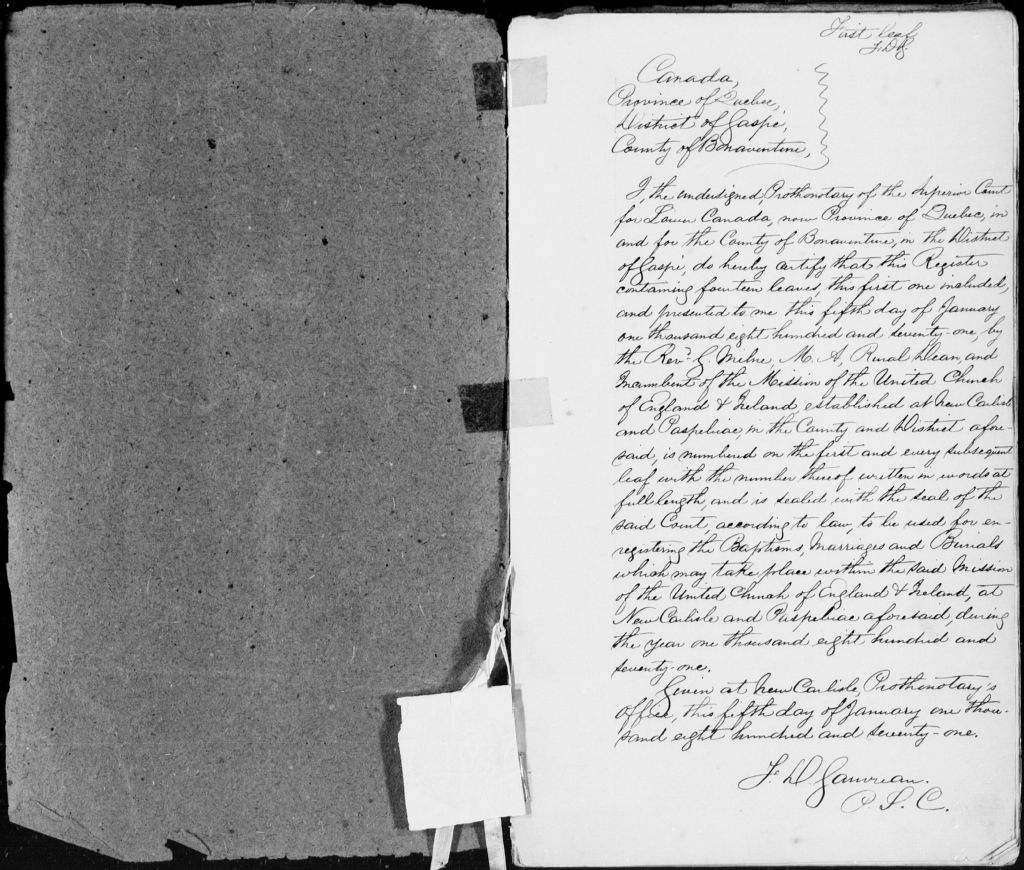 First leaf
F.D.G.
Canada,
Province of Quebec,
District of Gaspé,
County of Bonaventure,
I, the undersigned, Prothonotary of the Superior Court
for Lower Canada, now Province of Quebec, in
and for the County of Bonaventure, in the District
of Gaspé, do hereby certify that this Register
containing fourteen leaves, this first one included,
and presented to me this fifth day of January
one thousand eight hundred and seventy-one, by
the Revd. G. Milne M. A, Rural Dean, and
Incumbent of the Mission of the United Church
of England & Ireland, established at New Carlisle
and Paspebiac, in the County and District afore-
said, is numbered on the first and every subsequent
leaf with the number thereof written in words at
full length, and is sealed with the seal of the
said Court, according to law, to be used for en-
registering the Baptisms, Marriages and Burials
which may take place within the said Mission
of the United Church of England & Ireland, at
New Carlisle and Paspebiac aforesaid, during
the year one thousand eight hundred and
seventy-one.
Given at New Carlisle, Prothonotary's
office, this fifth day of January one thou-
sand eight hundred and seventy-one.
F. D. Gauvreau.
P. S. C.